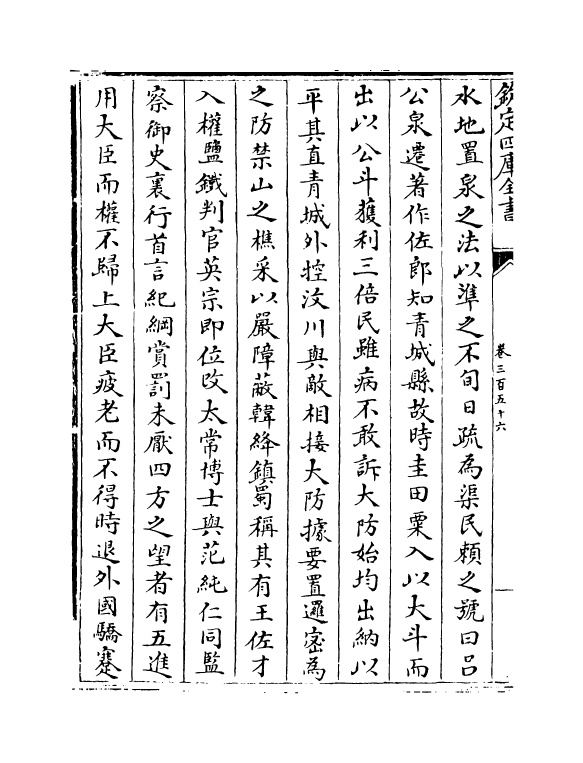 欽定四庫全書
卷三百五十六
水地置泉之法以準之不旬日疏為渠民賴之號曰吕
公泉遷著作佐郎知青城縣故時圭田粟入以大斗而
出以公斗獲利三倍民雖病不敢訴大防始均出納以
平其直青城外控汶川與敵相接大防據要置邏宻為
之防禁山之樵采以嚴障蔽韓絳鎮蜀稱其有王佐才
入權鹽鐵判官英宗即位改太常博士與范純仁同監
察御史裏行首言紀綱賞罰未厭四方之望者有五進
用大臣而權不歸上大臣疲老而不得時退外國驕蹇